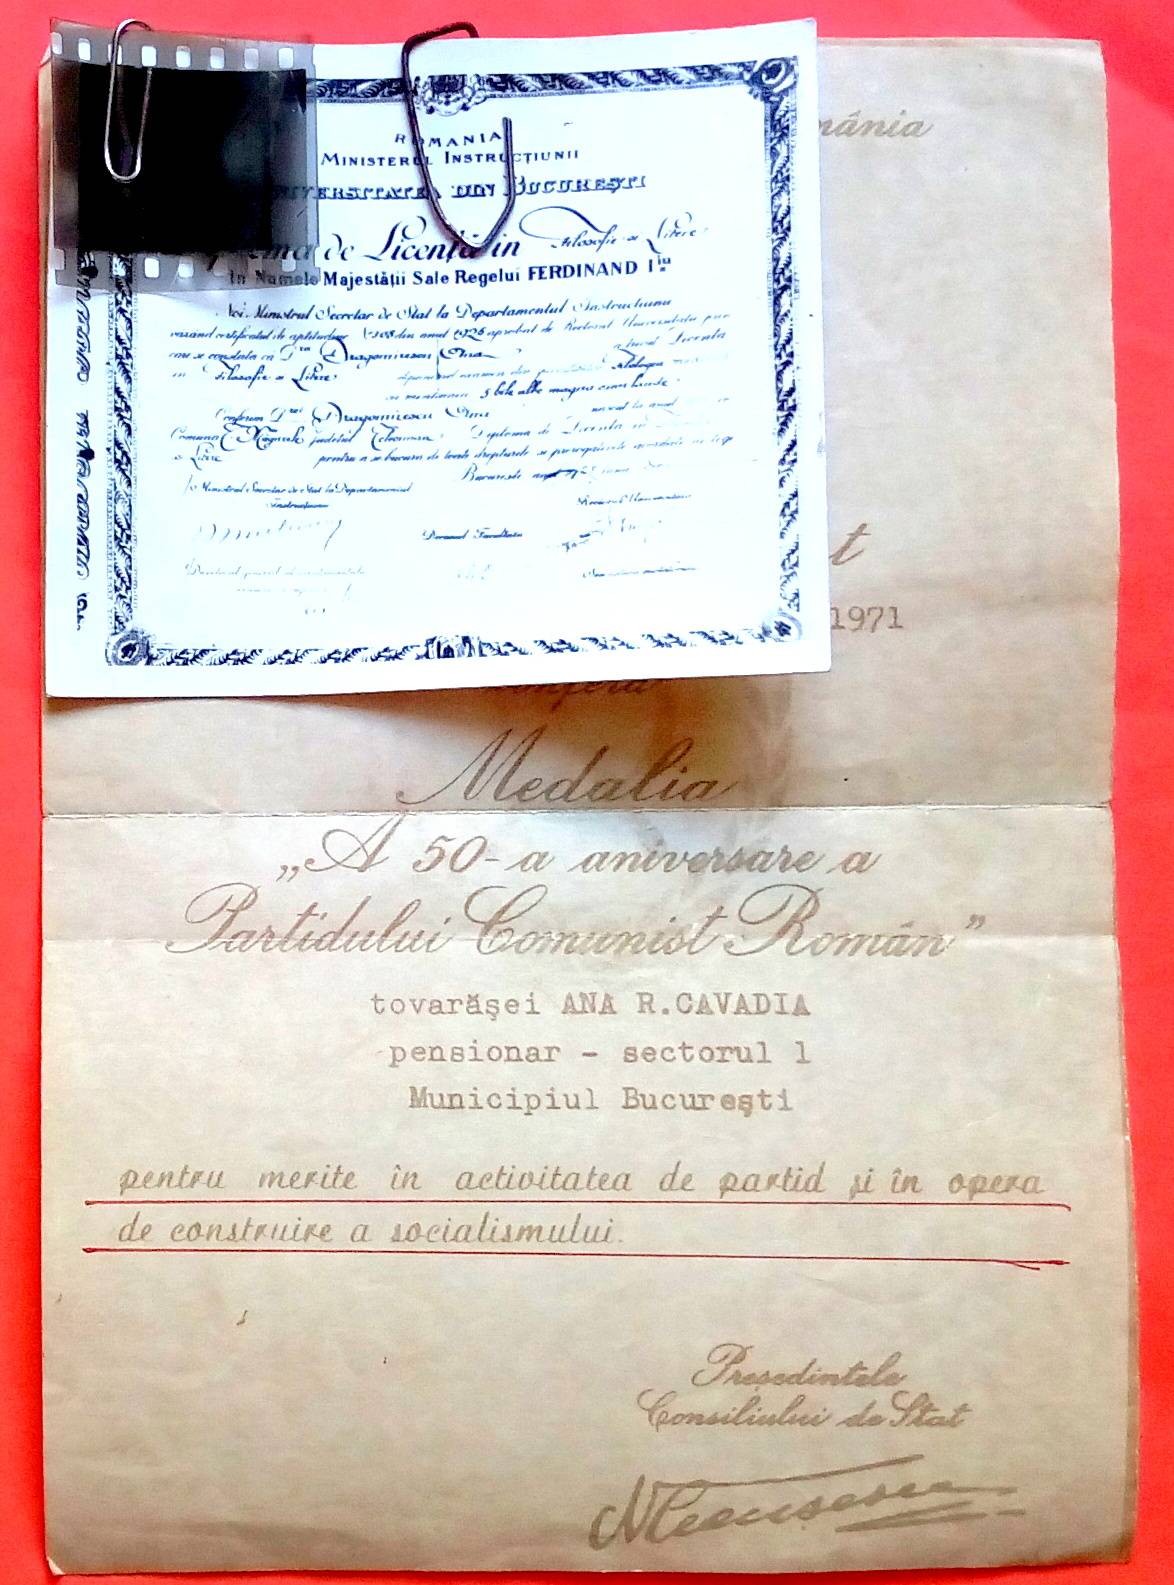 ROMANIA
MINISTERUL INSTRUCŢIUNII
UNIVERSITATEA DIN BUCUREŞTI
de Licenţă in Filosofie si Litere
In Numele Majestăţii Sale Regelui FERDINAND I iu
Noi Ministrul Secretar de Stat la Departamentul Instructiunii
vazând certificatul de aptitudine din anul 1925 aprobat de Rectorul Universitatii prin
care se constata ca Dra Dragomirescu Ana a trecut Licenta
in Filosofie si Litere
cu mentiunea 5 bile albe magna cum laude
Conferim Drei Dragomirescu Ana
Comuna Măgurele judetul Diploma de Licenta in
si Litere pentru a se bucura de toate drepturile si prerogativele acordate de legi
Bucuresti
Ministrul Secretar de Stat la Departamentul
Instructiunii
Decanul Facultatii
ânia
t
1971
conferă
Medalia
„A 50-a aniversare a
Partidului Comunist Român”
tovarăşei ANA R.CAVADIA
pensionar - sectorul 1
Municipiul Bucureşti
pentru merite în activitatea de partid şi în opera
de construire a socialismului.
Preşedintele
Consiliului de Stat
NCeauşescu